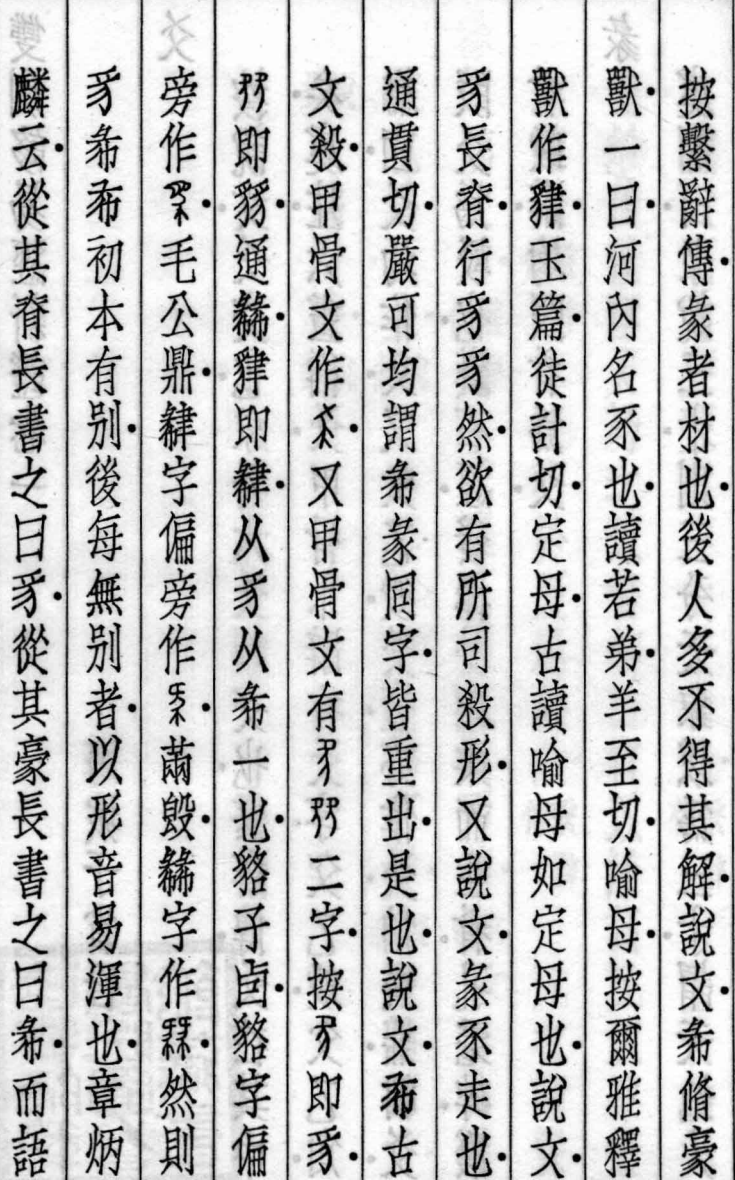 按繫辭傳彖者材也後人多不得其解說文㣇脩豪
獸一曰河內名豕也讀若弟羊至切喻母按爾雅釋
獸作貄玉篇徒計切定母古讀喻母如定母也說文
豸長脊行豸豸然欲有所司殺形又說文彖豕走也
通貫切嚴可均謂㣇彖同字皆重出是也說文㣇古
文殺甲骨文作又甲骨文有二字按即豸
即通貄即从豸从㣇一也貉子卣貉字偏
旁作毛公鼎字偏旁作毀字作然則
豸㣇初本有别後每無别者以形音易渾也章炳
麟云從其脊長書之曰豸從其豪長書之曰㣇而語